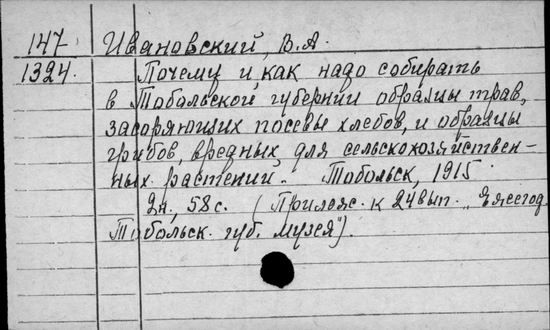 147 Ивановский, В.А.
1324. Почему и как надо собирать
в Тобольской губернии образцы трав,
засоряющих посевы хлебов, и образцы
грибов, вредных для сельскохозяйствен-
ных растений. Тобольск, 1915
58 с. (Прилож. к 24 вып. „Ежегод.
Тобольск. губ. музея").